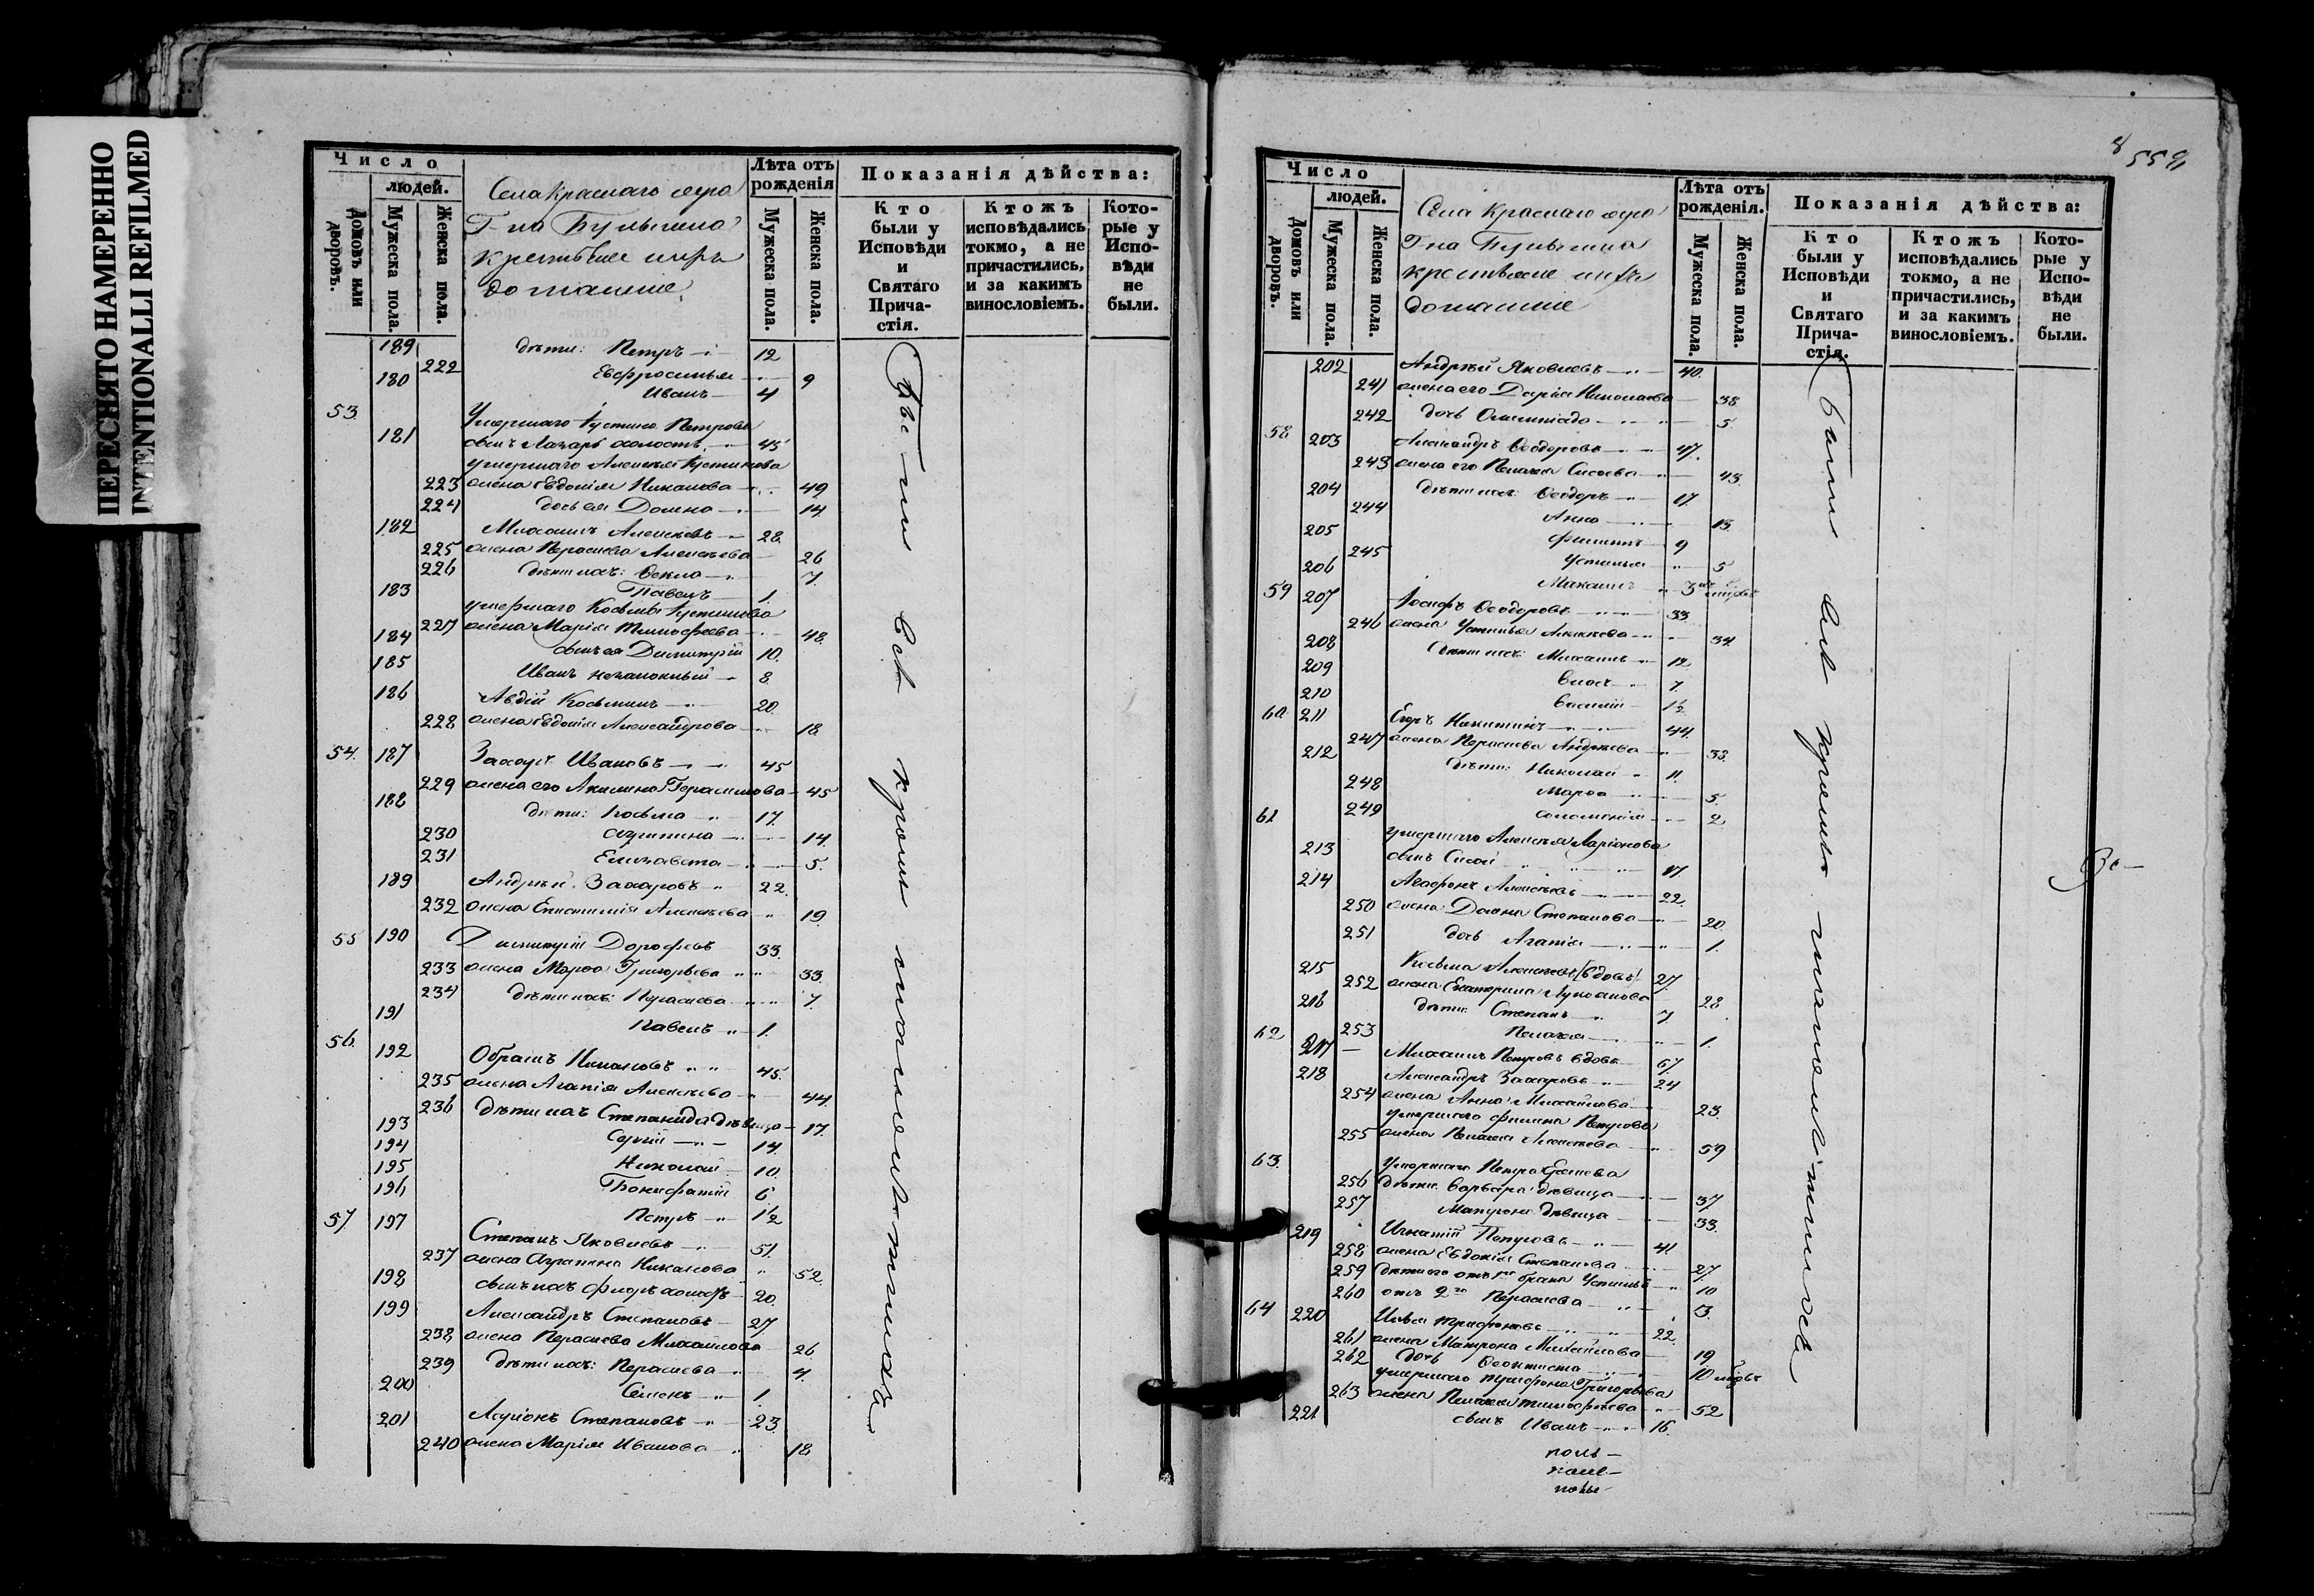 ПЕРЕСНЯТО НАМЕРЕННО
INTENTIONALLI REFILMED
Число
людей.
Домовъ или дворовъ.
Мужеска пола.
Женска пола.
Села Краснаго
Г-на Булыгина
крестьяне
Лѣта отъ рожденія
Мужеска пола.
Женска пола.
Показанія дѣйства:
Кто были у Исповѣди и Святаго Причастія.
Ктожъ исповѣдались токмо, а не причастились, и за какимъ винословіемъ.
Которые у Исповѣди не были.
189 дѣти: Петръ 12
222 Евфросинья 9
180 Иванъ 4
53.
Умершаго Іустина Петрова
181 сынъ Лазарь холостъ 45
умершаго Алексѣя Іустинова
223 жена Евдокія 49
224 дочь ея Домна 14
182 Михаилъ Алексѣевъ 28
225 жена Параскева Алексѣева 26
226 дѣти ихъ: Ѳекла 7
183 Павелъ 1
умершаго Косьмы Іустинова
227 жена Марія Тимоѳеева 48
184 сынъ ея Димитрій 10
185 Иванъ незаконный 8
186 Авдій Косьминъ 20
228 жена Евдокія Александрова 18
54. 187 Захаръ Ивановъ 45
229 жена его Акилина Герасимова 45
188 дѣти: Косьма 17
230 Агрипина 14
231 Елизавета 5
189 Андрей Захаровъ 22
232 жена Епистимія Алексѣева 19
55 190 Димитрій Дороѳеевъ 33
233 жена Марѳа Григорьева 33
234 дѣти ихъ: Параскева 7
191 Павелъ 1
56.
192 45
235 жена Агапія Алексѣева 44
236 дѣти ихъ Степанида дѣвица 17
193 Сергій 14
194 Николай 10
195 Вонифатій 6
196 Петръ 1/2
57 197 Степанъ Яковлевъ 51
237 жена Агрипина 52
198 сынъ ихъ Флоръ холостъ 20
199 Александръ Степановъ 27
238 жена Параскева Михайлова 26
239 дѣти ихъ: Параскева 4
200 Семенъ 1
201 Ларіонъ Степановъ 23
240 жена Марія Иванова 18
Были всѣ кромѣ малолѣтнихъ
8
559
Число
людей.
Домовъ или дворовъ.
Мужеска пола.
Женска пола.
Села Краснаго
Г-на Булыгина
крестьяне
Лѣта отъ рожденія.
Мужеска пола.
Женска пола.
Показанія дѣйства:
Кто были у Исповѣди и Святаго Причастія.
Ктожъ исповѣдались токмо, а не причастились, и за какимъ винословіемъ.
Которые у Исповѣди не были.
202 Андрей Яковлевъ 40
241 жена его Дарія Николаева 38
242 дочь Олимпіада 5
58 203 Александръ Ѳеодоровъ 47
243 жена его Пелагея Сисоева 43
204 дѣти ихъ: Ѳеодоръ 17
244 Анна 13
205 Филиппъ 9
245 Устинья 5
206 Максимъ 3
59 207 Іосифъ Ѳеодоровъ 33
246 жена Устинья Алексѣева 34
208 дѣти ихъ: Михаилъ 12
209 Власъ 7
210 Василій 1/2
60 211 Егоръ Никитинъ 44
247 жена Параскева Андреева 33
212 дѣти: Николай 11
248 Марѳа 5
61 249 Соломонія 2
умершаго Алексѣя Ларіонова
213 сынъ Сисой 17
214 Агафонъ Алексѣевъ 22
250 жена Домна Степанова 20
251 дочь Агапія 1
215 Косьма Алексѣевъ 27
252 жена Екатерина 28
216 дѣти: Степанъ 7
62 253 Пелагея 1
217 Михаилъ Петровъ вдовъ 67
218 Александръ Захаровъ 24
254 жена Анна Михайлова 23
умершаго Филипа Петрова
255 жена Пелагея Алексѣева 59
63. умершаго Петра
256 дѣти: Варвара дѣвица 37
257 Матрона дѣвица 33
219 Игнатій Петровъ 41
258 жена Евдокія Степанова 27
259 брака Устинья 10
260 отъ 2го Параскева 3
64 220 Илья Трифоновъ 22
261 жена Матрона Михайлова 19
262 дочь Ѳеоктиста 10
умершаго Трифона Григорьева
263 жена Пелагея Тимоѳеева 52
221 сынъ Иванъ 16
Были всѣ кромѣ малолѣтнихъ